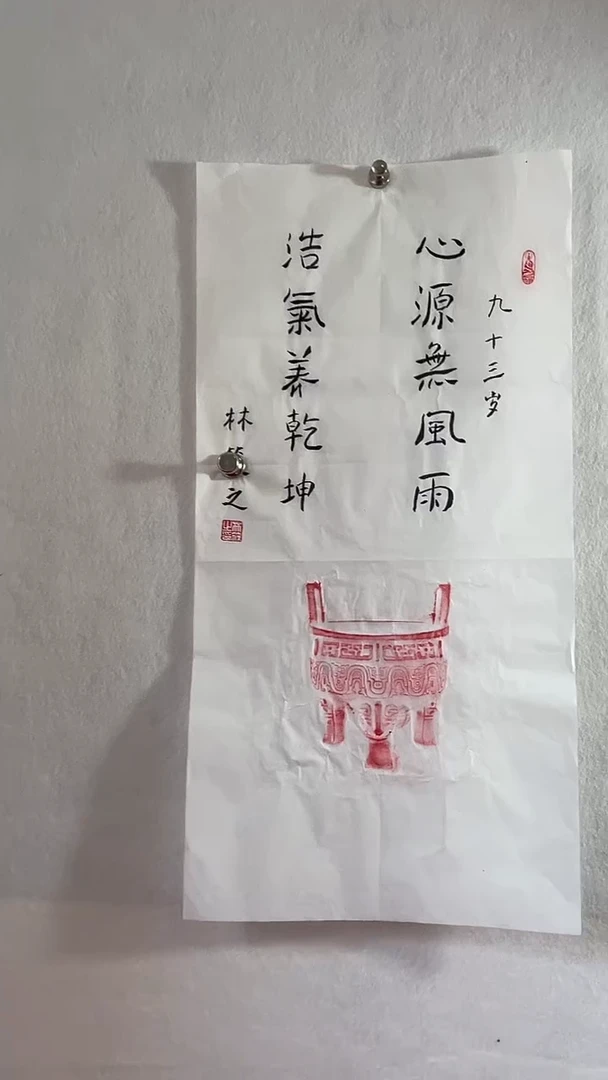 九十三岁
心源無風雨
浩氣养乾坤
林 之